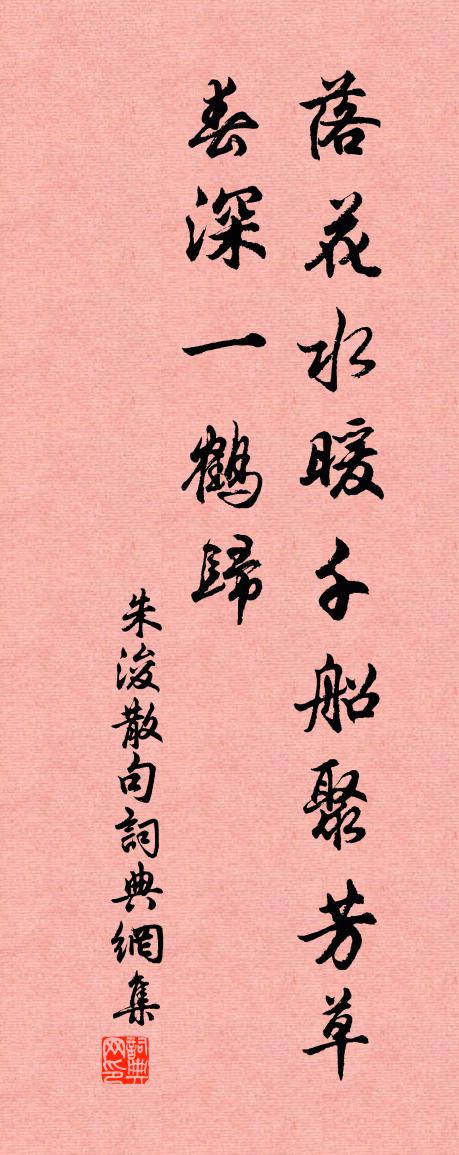 落花水暖千船聚芳草
春深一鶴歸
朱浚散句詞典網集
詞典网印